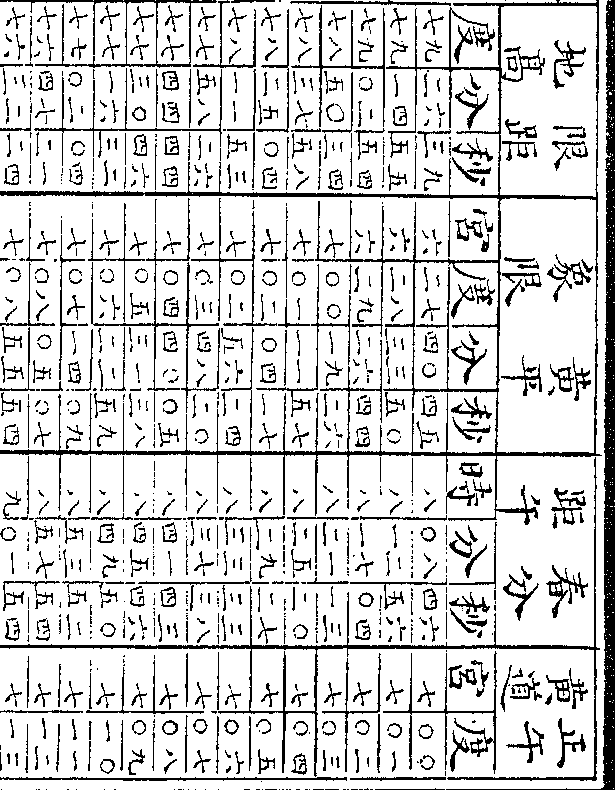 限距地高 黄平象限 春分距午 正午黄道
度 分 秒 宮 度 分 秒 時 分 秒 宮 度
七九 二六 三九 六 二七 四〇 四五 八 〇八 四六 七 〇〇
七九 一四 五五 六 二八 三三 五〇 八 一二 五六 七 〇一
七九 〇二 五四 六 二九 二六 四四 八 一七 〇四 七 〇二
七八 五〇 三四 七 〇〇 一九 二六 八 二一 一三 七 〇三
七八 三七 五八 七 〇一 一一 五七 八 二五 二〇 七 〇四
七八 二五 〇四 七 〇二 〇四 一七 八 二九 二七 七 〇五
七八 一一 五三 七 〇二 五六 二四 八 三三 三三 七 〇六
七七 五八 二六 七 〇三 四八 二〇 八 三七 三八 七 〇七
七七 四四 四四 七 〇四 四〇 〇五 八 四一 四三 七 〇八
七七 三〇 四六 七 〇五 三一 三八 八 四五 四六 七 〇九
七七 一六 三二 七 〇六 二二 五九 八 四九 五〇 七 一〇
七七 〇二 〇四 七 〇七 一四 〇九 八 五三 五二 七 一一
七六 四七 二一 七 〇八 〇五 〇七 八 五七 五四 七 一二
七六 三二 二四 七 〇八 五五 五四 九 〇一 五四 七 一三